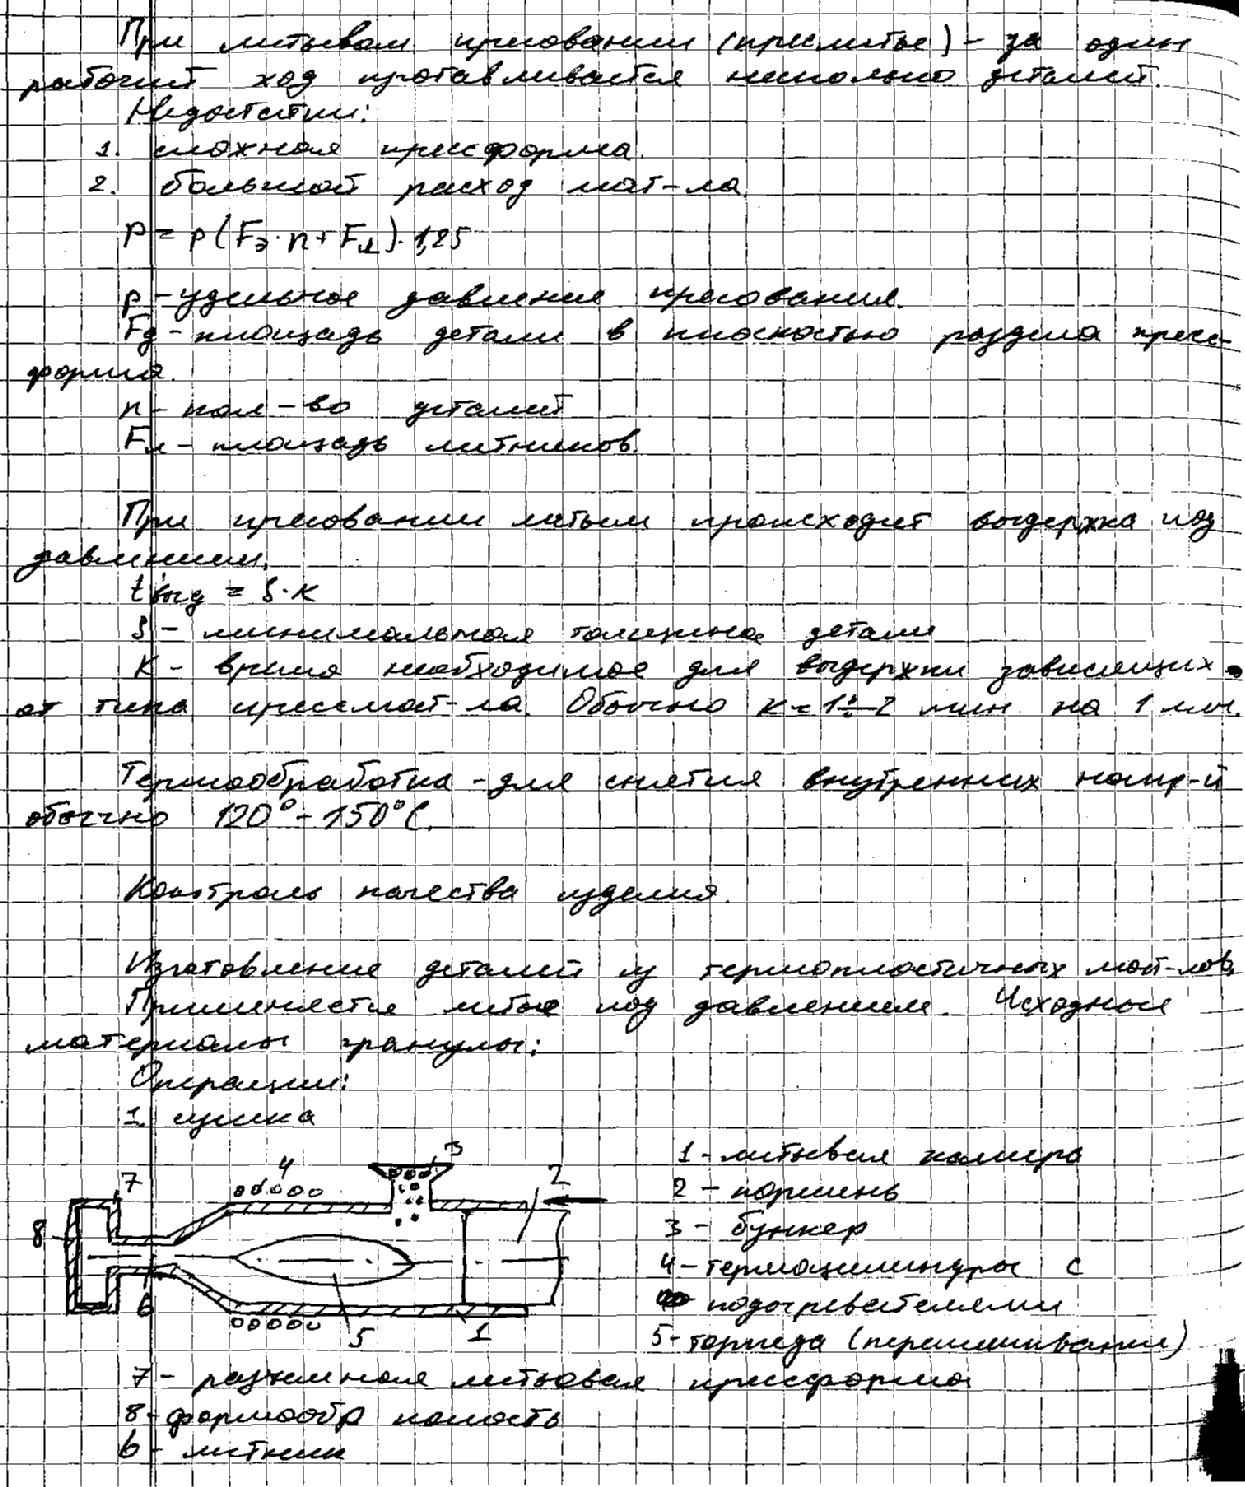 При литьевом пресовании (преслитье) - за один
рабочий ход протавливается несколько деталей.
Недостатки:
1. сложная прессформа.
2. большой расход мат-ла
P = p(Fд·n+Fл)·1,25
p - удельное давление пресования.
Fд - площадь детали в плоскостью раздела пресс-
формы.
n - кол-во деталей
Fл - площадь литников.
При пресовании литьем происходит выдержка под
давлением.
tвыд = S·K
S - минимальная толщина детали
K - время необходимое для выдержки зависящих
от типа прессмат-ла. Обычно K = 1÷2 мин на 1 мм.
Термообработка - для снятия внутренних напр-й
обычно 120° - 150°C.
Контроль качества изделия.
Изготовление деталей из термопластичных мат-лов
Применяется литье под давлением. Исходные
материалы гранулы:
Операции:
1. сушка
1 - литьевая камера
2 - поршень
3 - бункер
4 - термоцилиндры с
подогревателями
5 - торпеда (перешивании)
7 - разъемная литьевая прессформа
8 - формообр полость
6 - литник
7
4
3
2
8
6
5
1